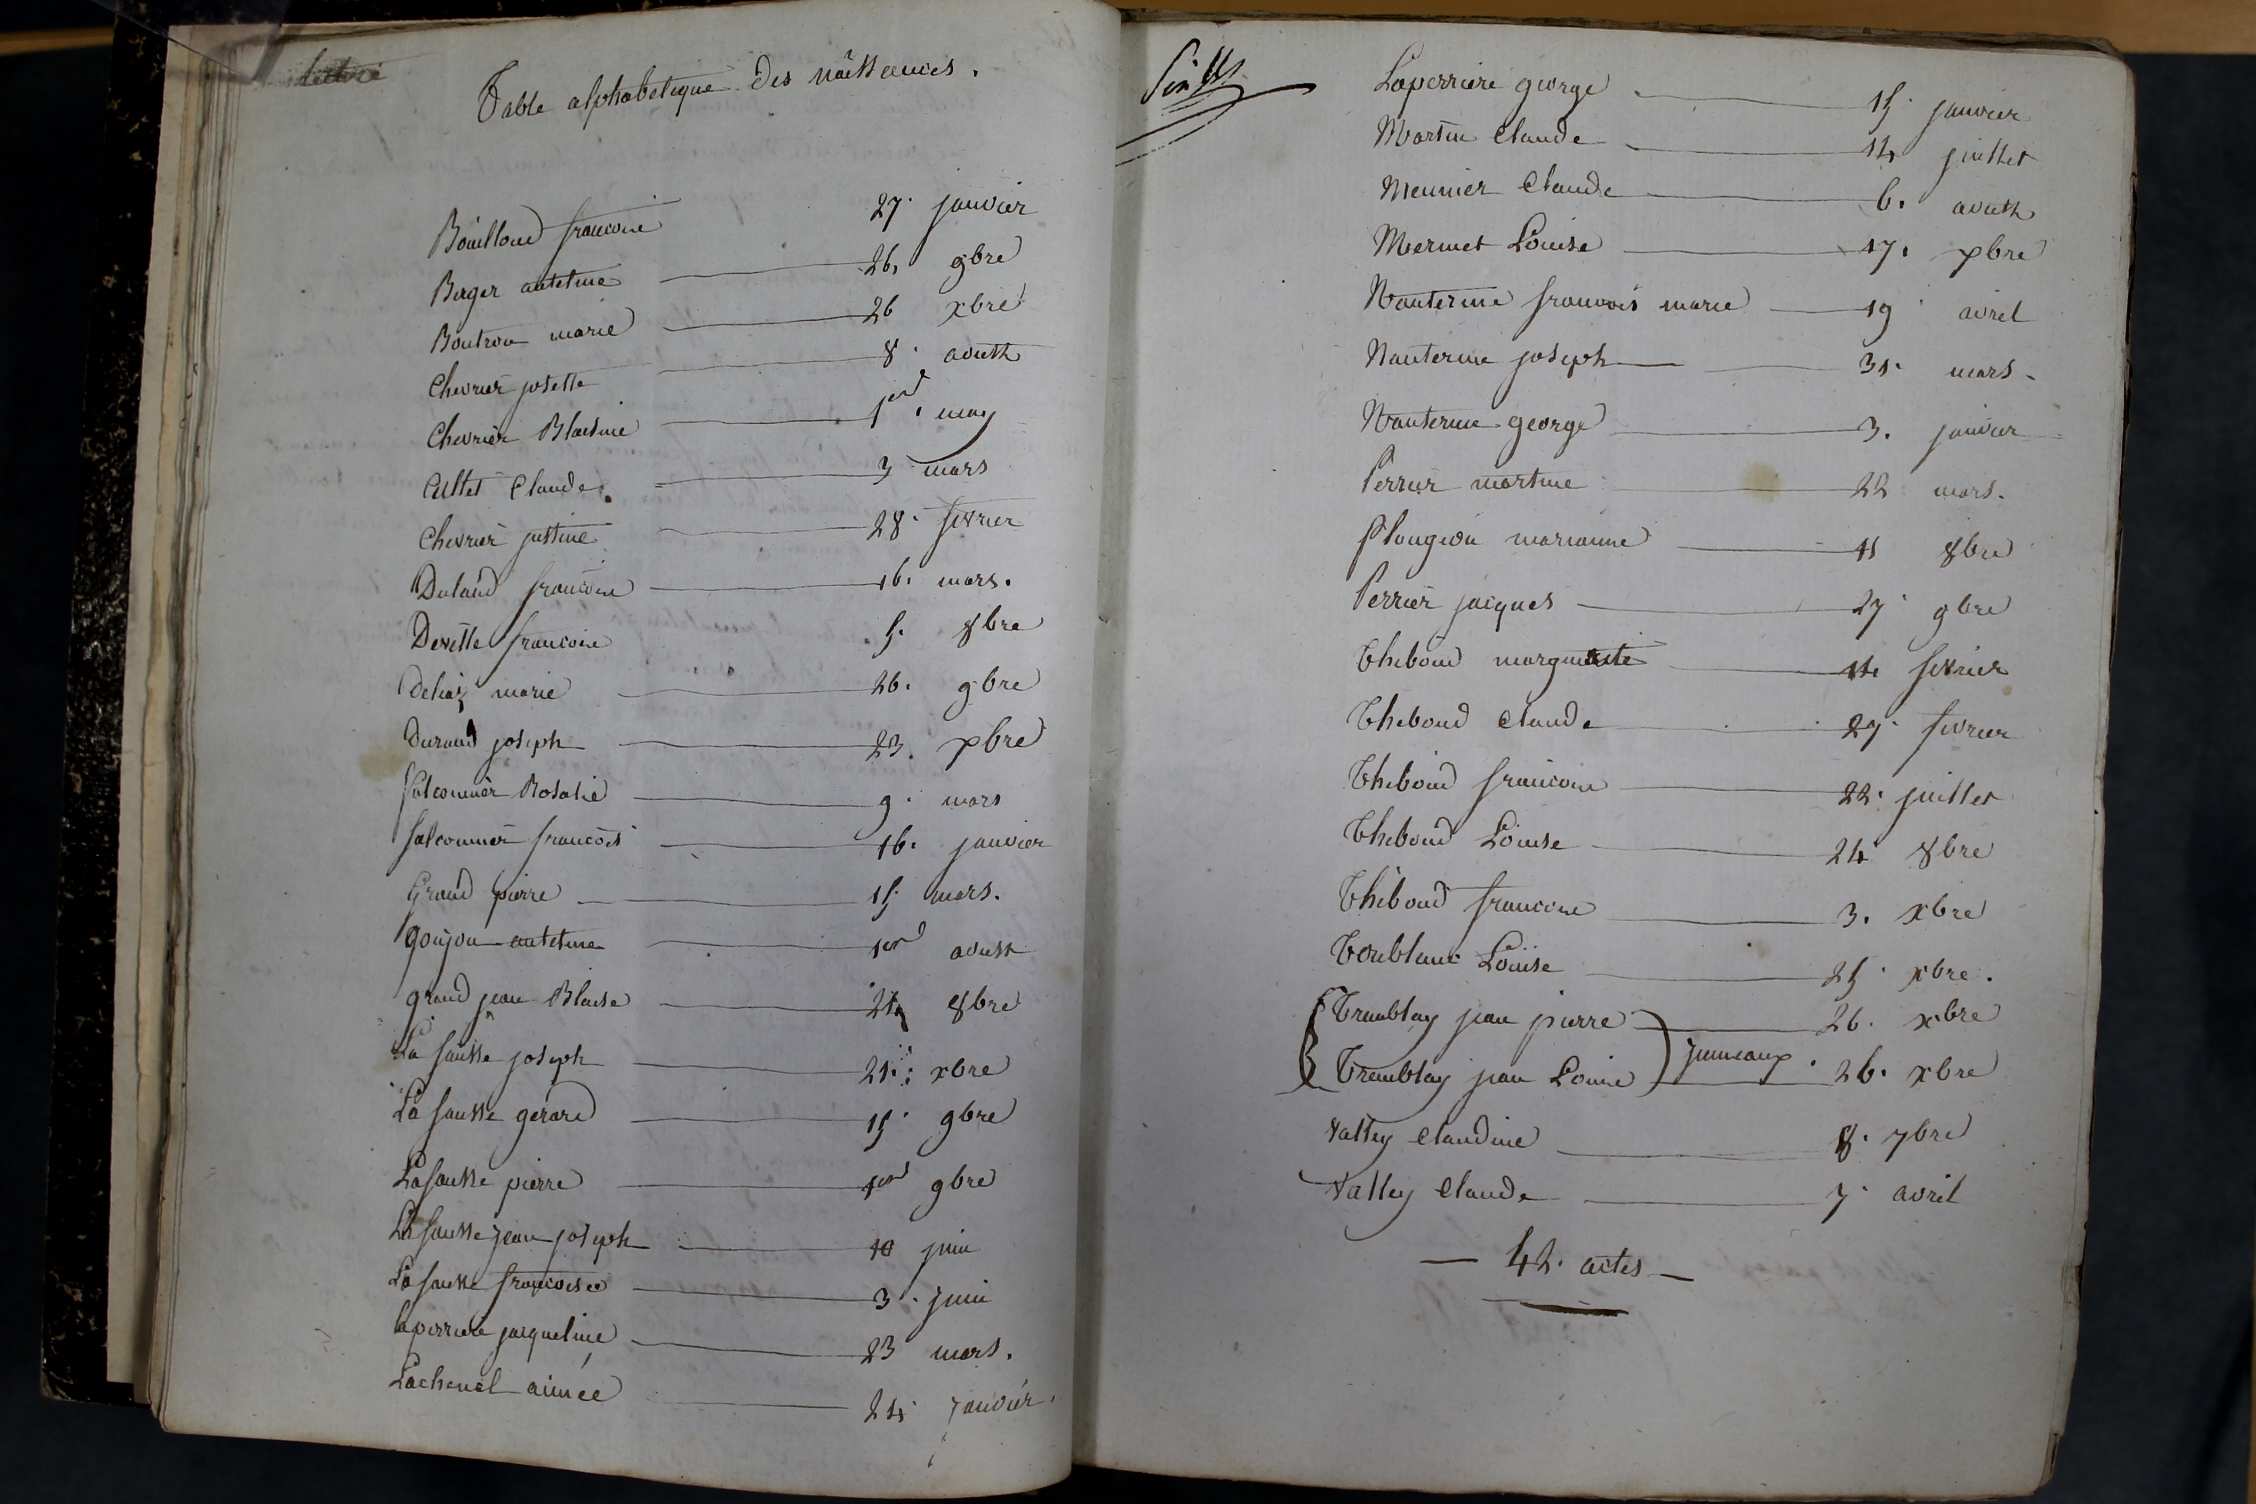 Table alphabetique des naissances.
Bouilloud francoise 27. janvier
Berger antelme 26. 9bre
Boutron marie 26 xbre
Chevrier josette 8. aoust
Chevrier Blaisine 1er. may
Cultet Claude. 3 mars
Chevrier justine 28. fevrier
Duland francoise 16. mars.
Deville francoise 5. 8bre
Dehaiz marie 26. 9bre
Durand joseph 23. xbre
falconnier Rosalie 9. mars
falconnier francois 16. janvier
Grand pierre 15 mars.
goujon antelme 1er aoust
grand jean Blaise 24 8bre
La fausse joseph 21. xbre
La fausse gérard 15. 9bre
Lafausse pierre 1er 9bre
La fausse jean joseph 10 juin
La fausse francoise 3. juin
laperriere jacqueline 23 mars.
Lachenal aimée 24. janvier.
Laperriere george 15. janvier
Martin Claude 14 juillet
Meunier Claude 6. aoust
Mermet Louise 17. xbre
Nanterme francois marie 19. avril
Nanterme joseph 31. mars
Nanterme george 3. janvier
Perrier martine 22 mars.
Plongeon marianne 11 8bre
Perrier jacques 27. 9bre
Theboud marguerite 14 fevrier
Theboud Claude 27. fevrier
Theboud francoise 22. juillet
Theboud Louise 24 8bre
Theboud francoise 3. xbre
Toublanc Louise 25. xbre.
Tremblay jean pierre 26. xbre
jumeaux.
Tremblay jean Louis 26. xbre
Valley Claudine 8. 7bre
Valley Claude 7. avril
— 42. actes —